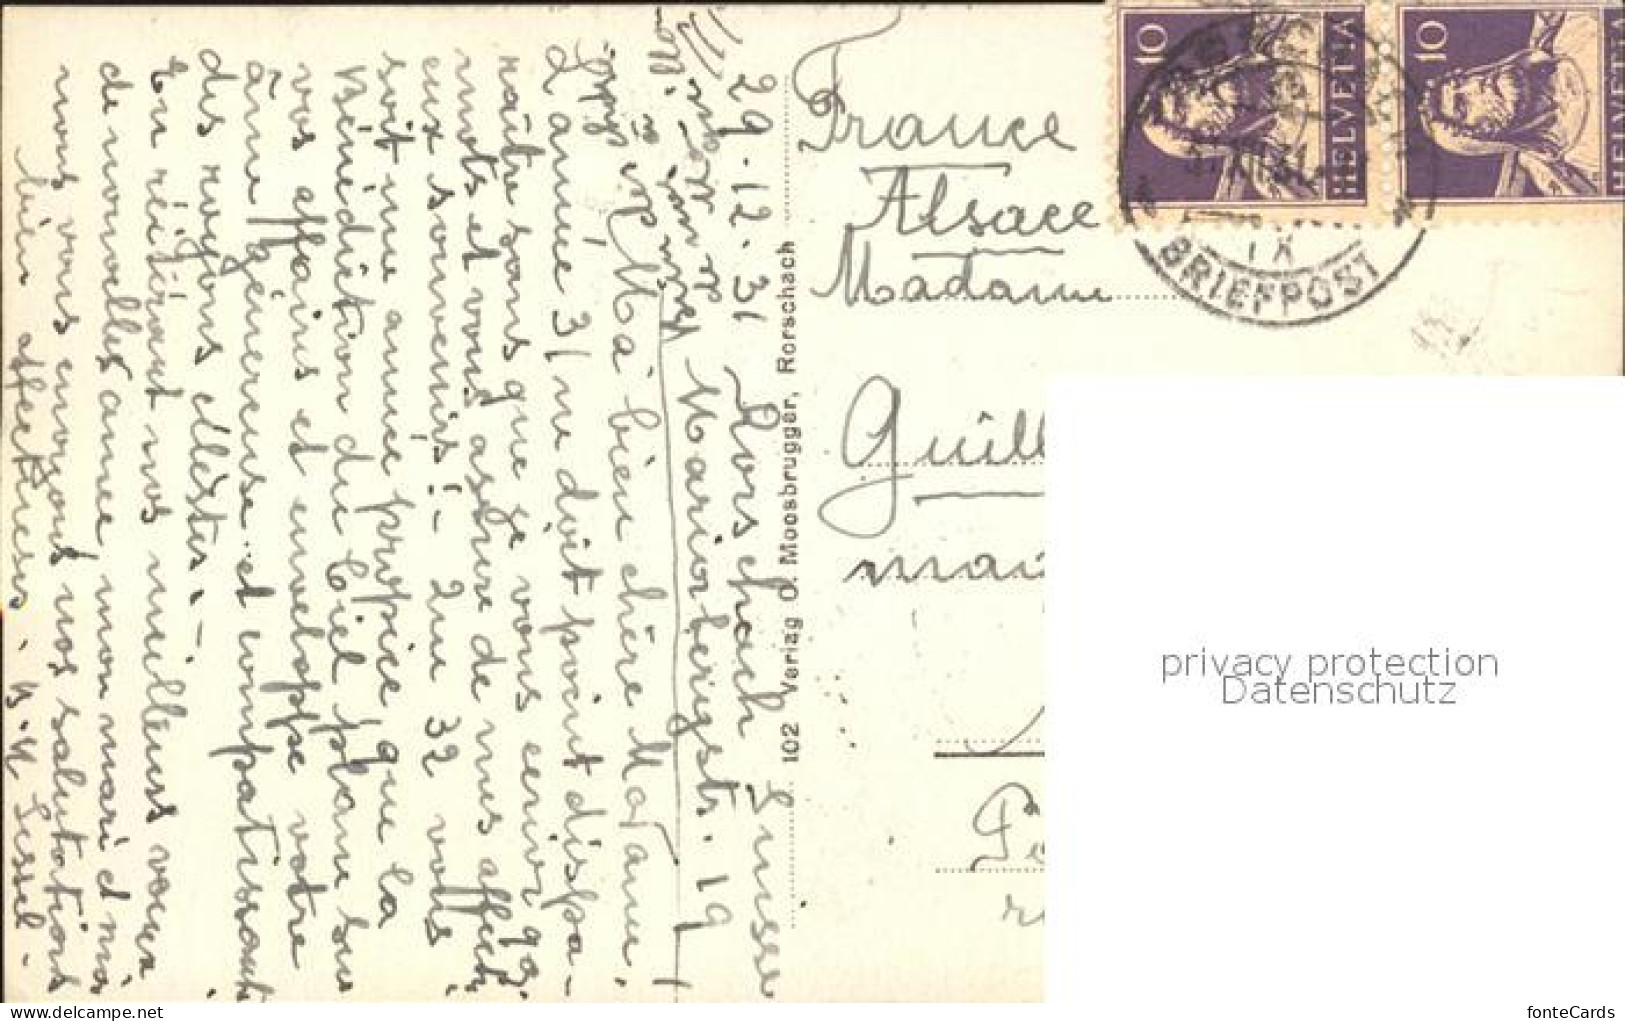 29.12.31 Rorschach Suisse
Mariabergstr. 19
Ma bien chère Madame,
L'année 31 ne doit point dispa-
raître sans que je vous envoi qq.
mots et vous assure de mes affect
eux souvenirs! - Que 32 vous
soit une année propice, que la
Bénédiction du Ciel plane sur
vos affaires et enveloppe votre
âme généreuse et compatissante
des rayons célestes. -
En réitérant nos meilleurs vœux
de nouvelle année, mon mari et moi
nous vous envoyons nos salutations
bien affectueuses.
102 Verlag O. Moosbrugger, Rorschach
France
Alsace
Madame
Guill
10 HELVETIA
10 HELVETIA
IX
BRIEFPOST
privacy protection
Datenschutz
www.delcampe.net
fonteCards